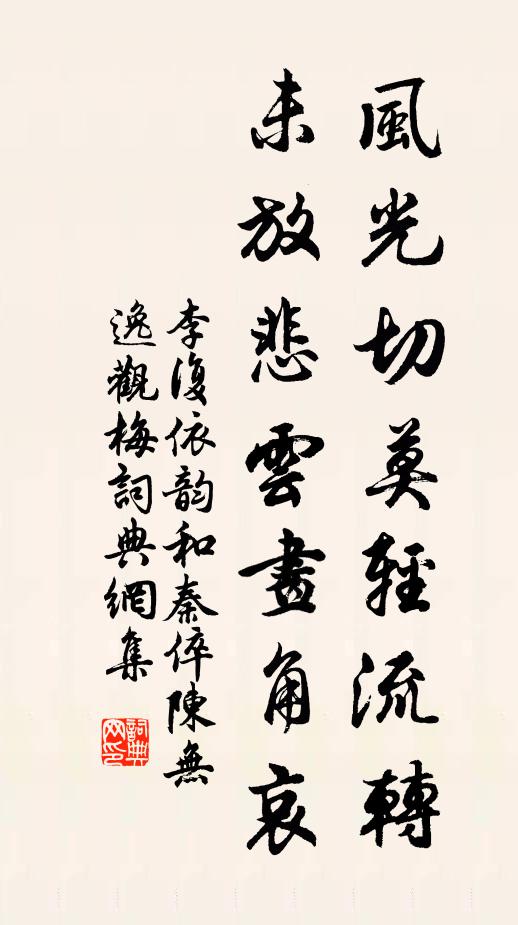 風光切莫輕流轉
未放悲雲畫角哀
李復依韵和秦倅陳無
逸觀梅詞典網集
詞典
网印